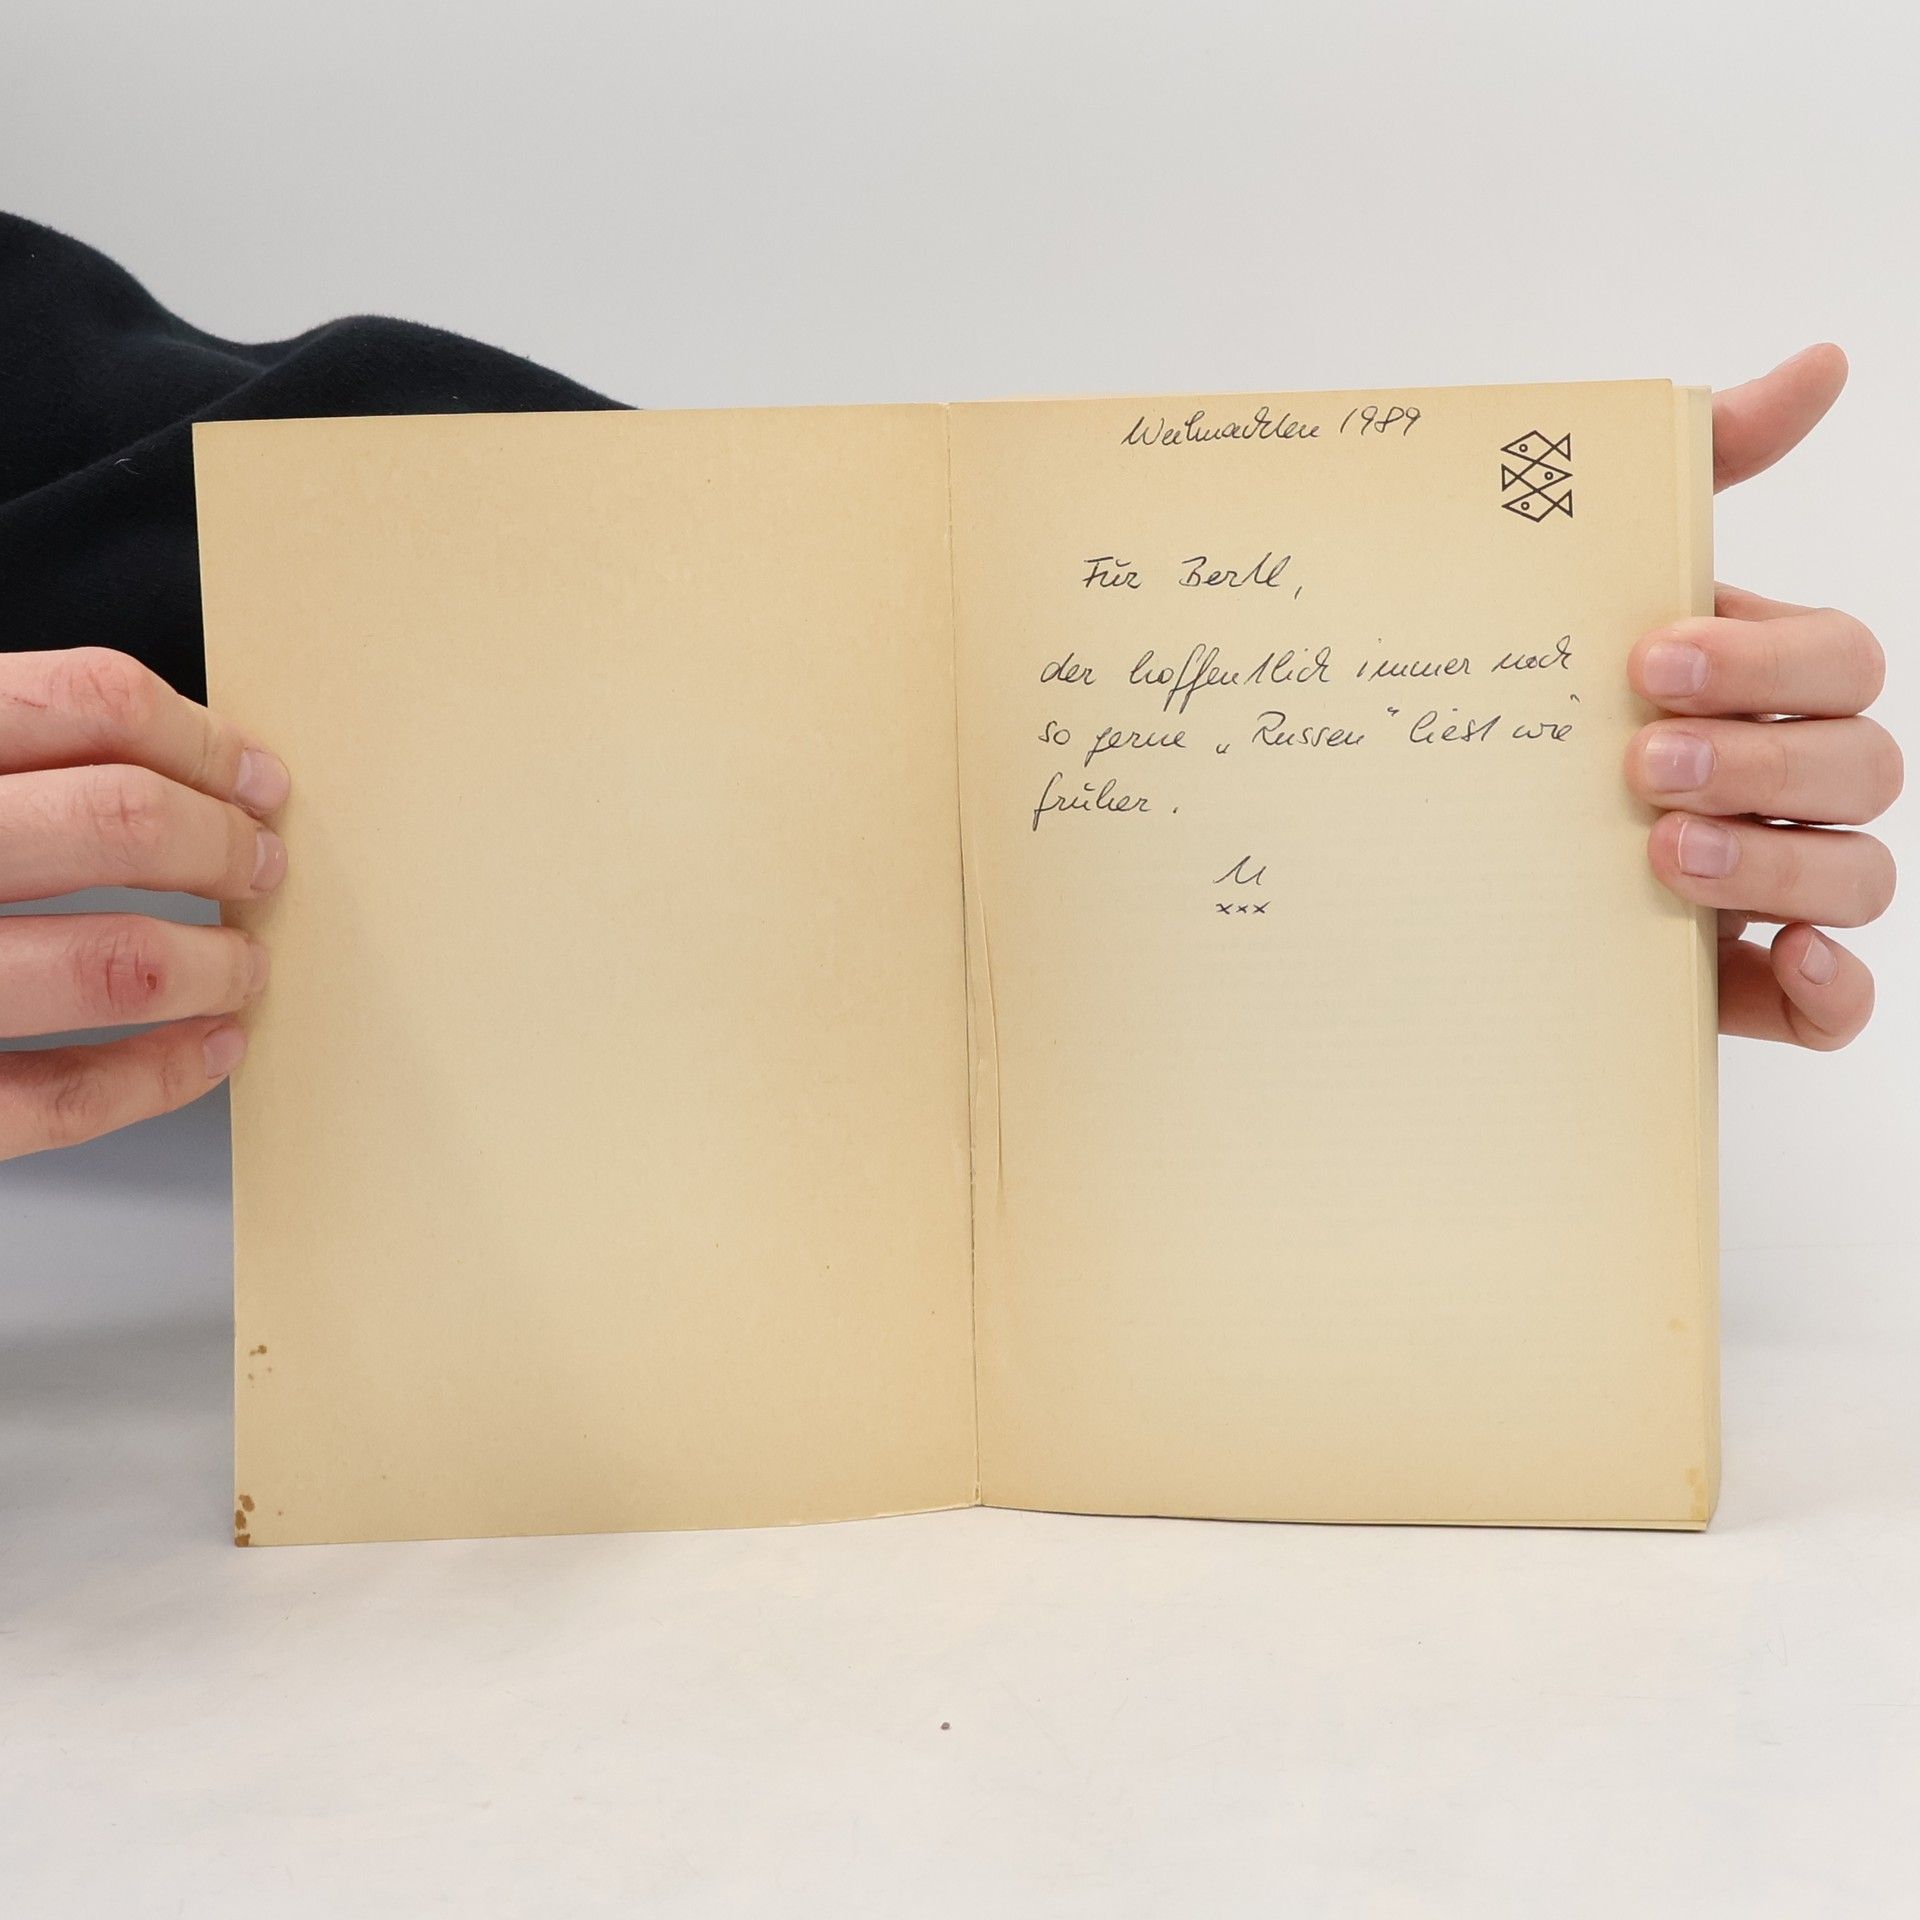 Weihnachten 1989
Für Bertl,
der hoffentlich immer noch
so gerne „Russen“ liest wie
früher.
U
xxx